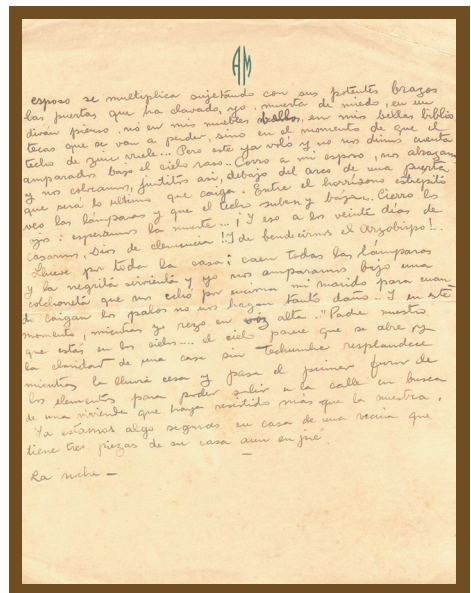 AM
esposo se multiplica sujetando con sus potentes brazos
las puertas que ha clavado, yo, muerta de miedo, en un
diván pienso, nó en mis muebles bellos, en mis bellas biblio
tecas que se van a perder, sino en el momento de que el
techo de zinc vuele... Pero este ya voló y no nos dimos cuenta
amparados bajo el cielo raso.. Corro a mi esposo, nos abrazamos
y nos colocamos, juntitos así, debajo del arco de una puerta
que será lo ultimo que caiga. Entre el horrísono estrepitó
veo las lámparas y que el techo suben y bajan. Cierro los
ojos: esperamos la muerte... ¡Y eso a los veinte días de
casarnos. Dios de clemencia! ¡Y de bendecirnos el Arzobispo!.
Llueve por toda la casa: caen todas las lámparas
y la negrita sirvienta y yo nos amparamos bajo una
colchoneta que nos echó por encima mi marido para cuan
do caigan los palos no nos hagan tanto daño.. Y en este
momento, mientras yo rezo en voz alta.." Padre nuestro
que estás en los cielos... el cielo parece que se abre y
la claridad de una casa sin techumbre resplandece
mientras la lluvia cesa y pasa el primer furor de
los elementos para poder salir a la calle en busca
de una vivienda que haya resistido más que la nuestra.
Ya estamos algo seguros en casa de una vecina que
tiene tres piezas de su casa aun en pié.
La noche —